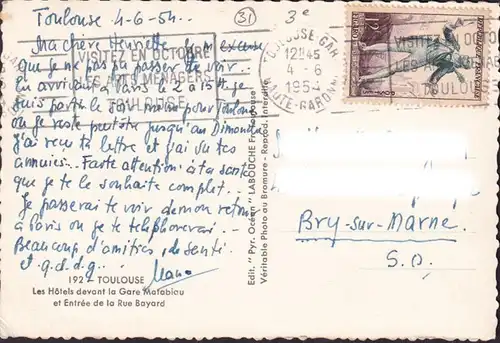 Toulouse 4-6-54..
31
3e
Ma chère Henriette. Je m'excuse
que je n'ai pas passer te voir..
En arrivant à Paris le 2 à 15h je
suis partie le soir même pour Toulouse
où je reste peut être jusqu'au Dimanche
j'ai reçu ta lettre et j'ai vu tes
ennuies... Faite attention à ta santé
que je te le souhaite complet..
Je passerai te voir de mon retour
à Paris ou je te téléphonerai..
Beaucoup d'amitiés, de santé
et q.q.d.q..
192 - TOULOUSE
Les Hôtels devant la Gare Matabiau
et Entrée de la Rue Bayard
VISITEZ EN OCTOBRE
LES ARTS MÉNAGERS
TOULOUSE
TOULOUSE GARE
12H45
4 - 6
1954
HAUTE-GARONNE
Edit. "Pyr. Océan" LABOUCHE Frères
Véritable Photo au Bromure - Reprod. Interdite
Bry-sur-Marne
S.O.